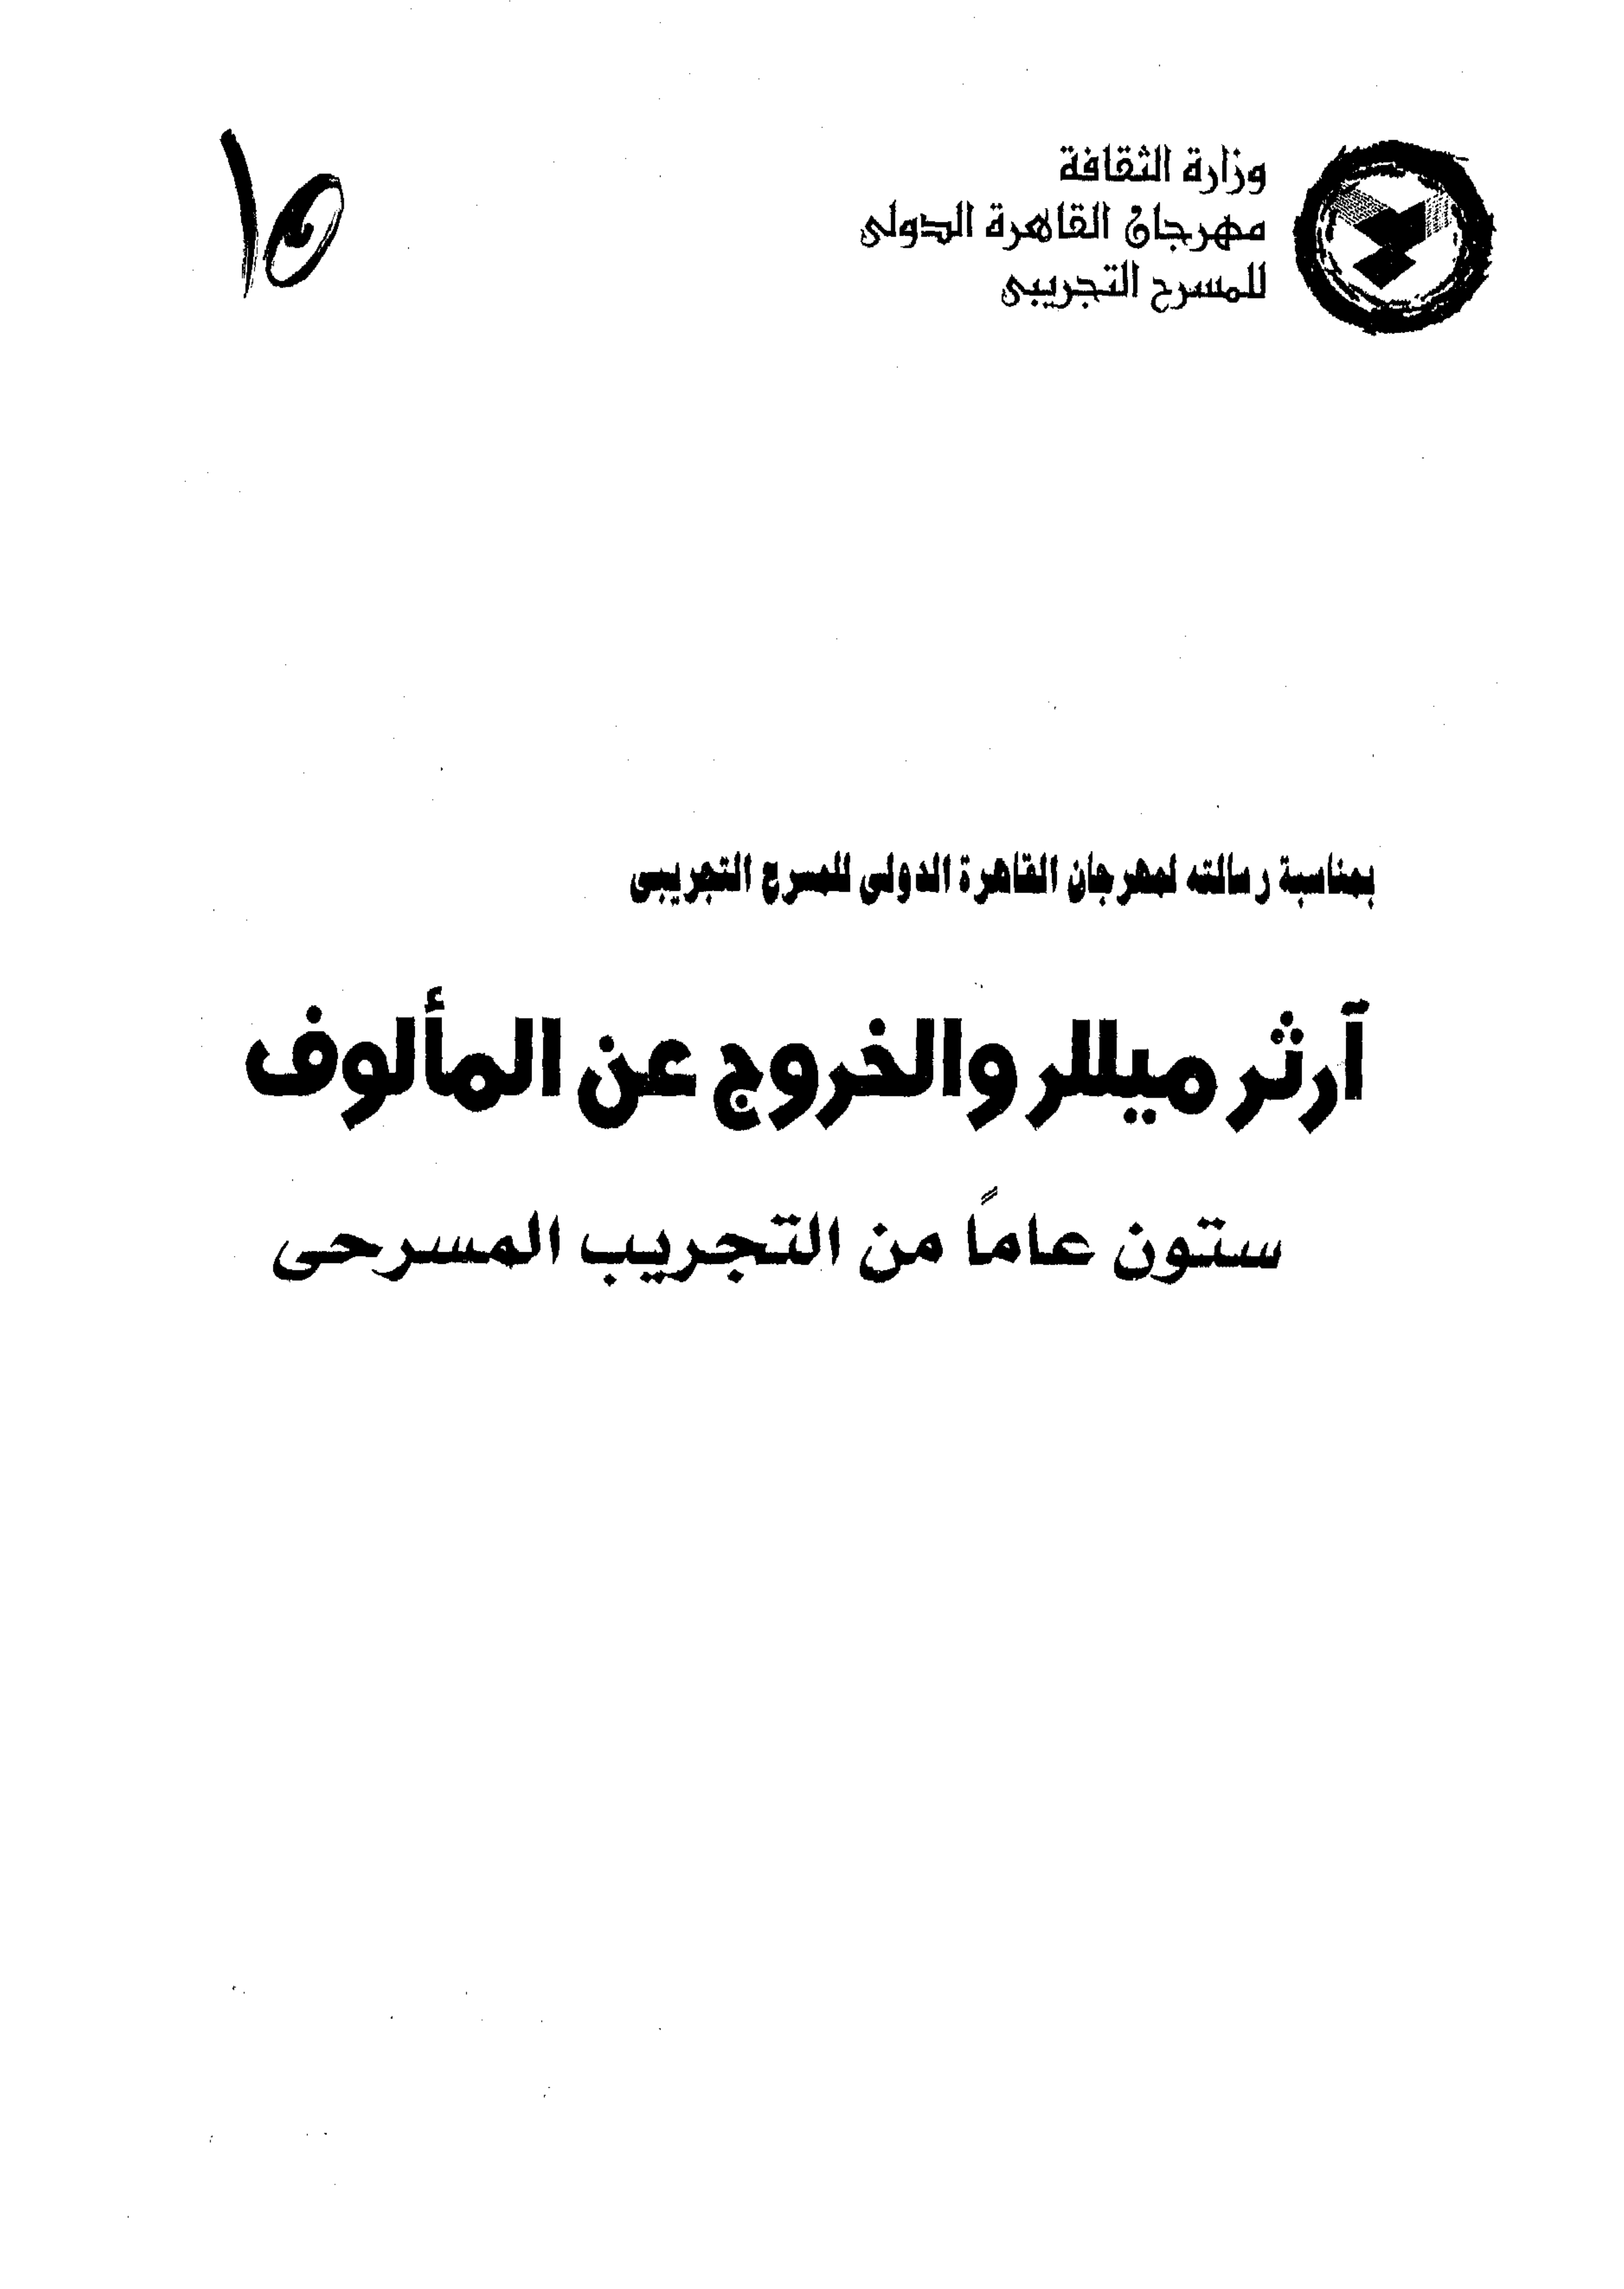 وزارة الثقافة
مهرجان القاهرة الدولى
للمسرح التجريبى
١٥
بمناسبة رسالته لمهرجان القاهرة الدولى للمسرح التجريبى
آرثر ميللر والخروج عن المألوف
ستون عاماً من التجريب المسرحى